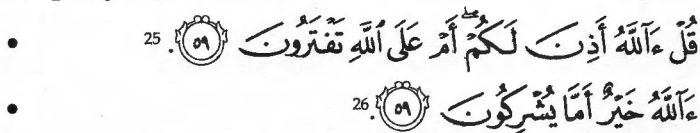 • قُلْ ءَآللَّهُ أَذِنَ لَكُمْ ۖ أَمْ عَلَى ٱللَّهِ تَفْتَرُونَ ﴿٥٩﴾. 25
• ءَآللَّهُ خَيْرٌ أَمَّا يُشْرِكُونَ ﴿٥٩﴾. 26